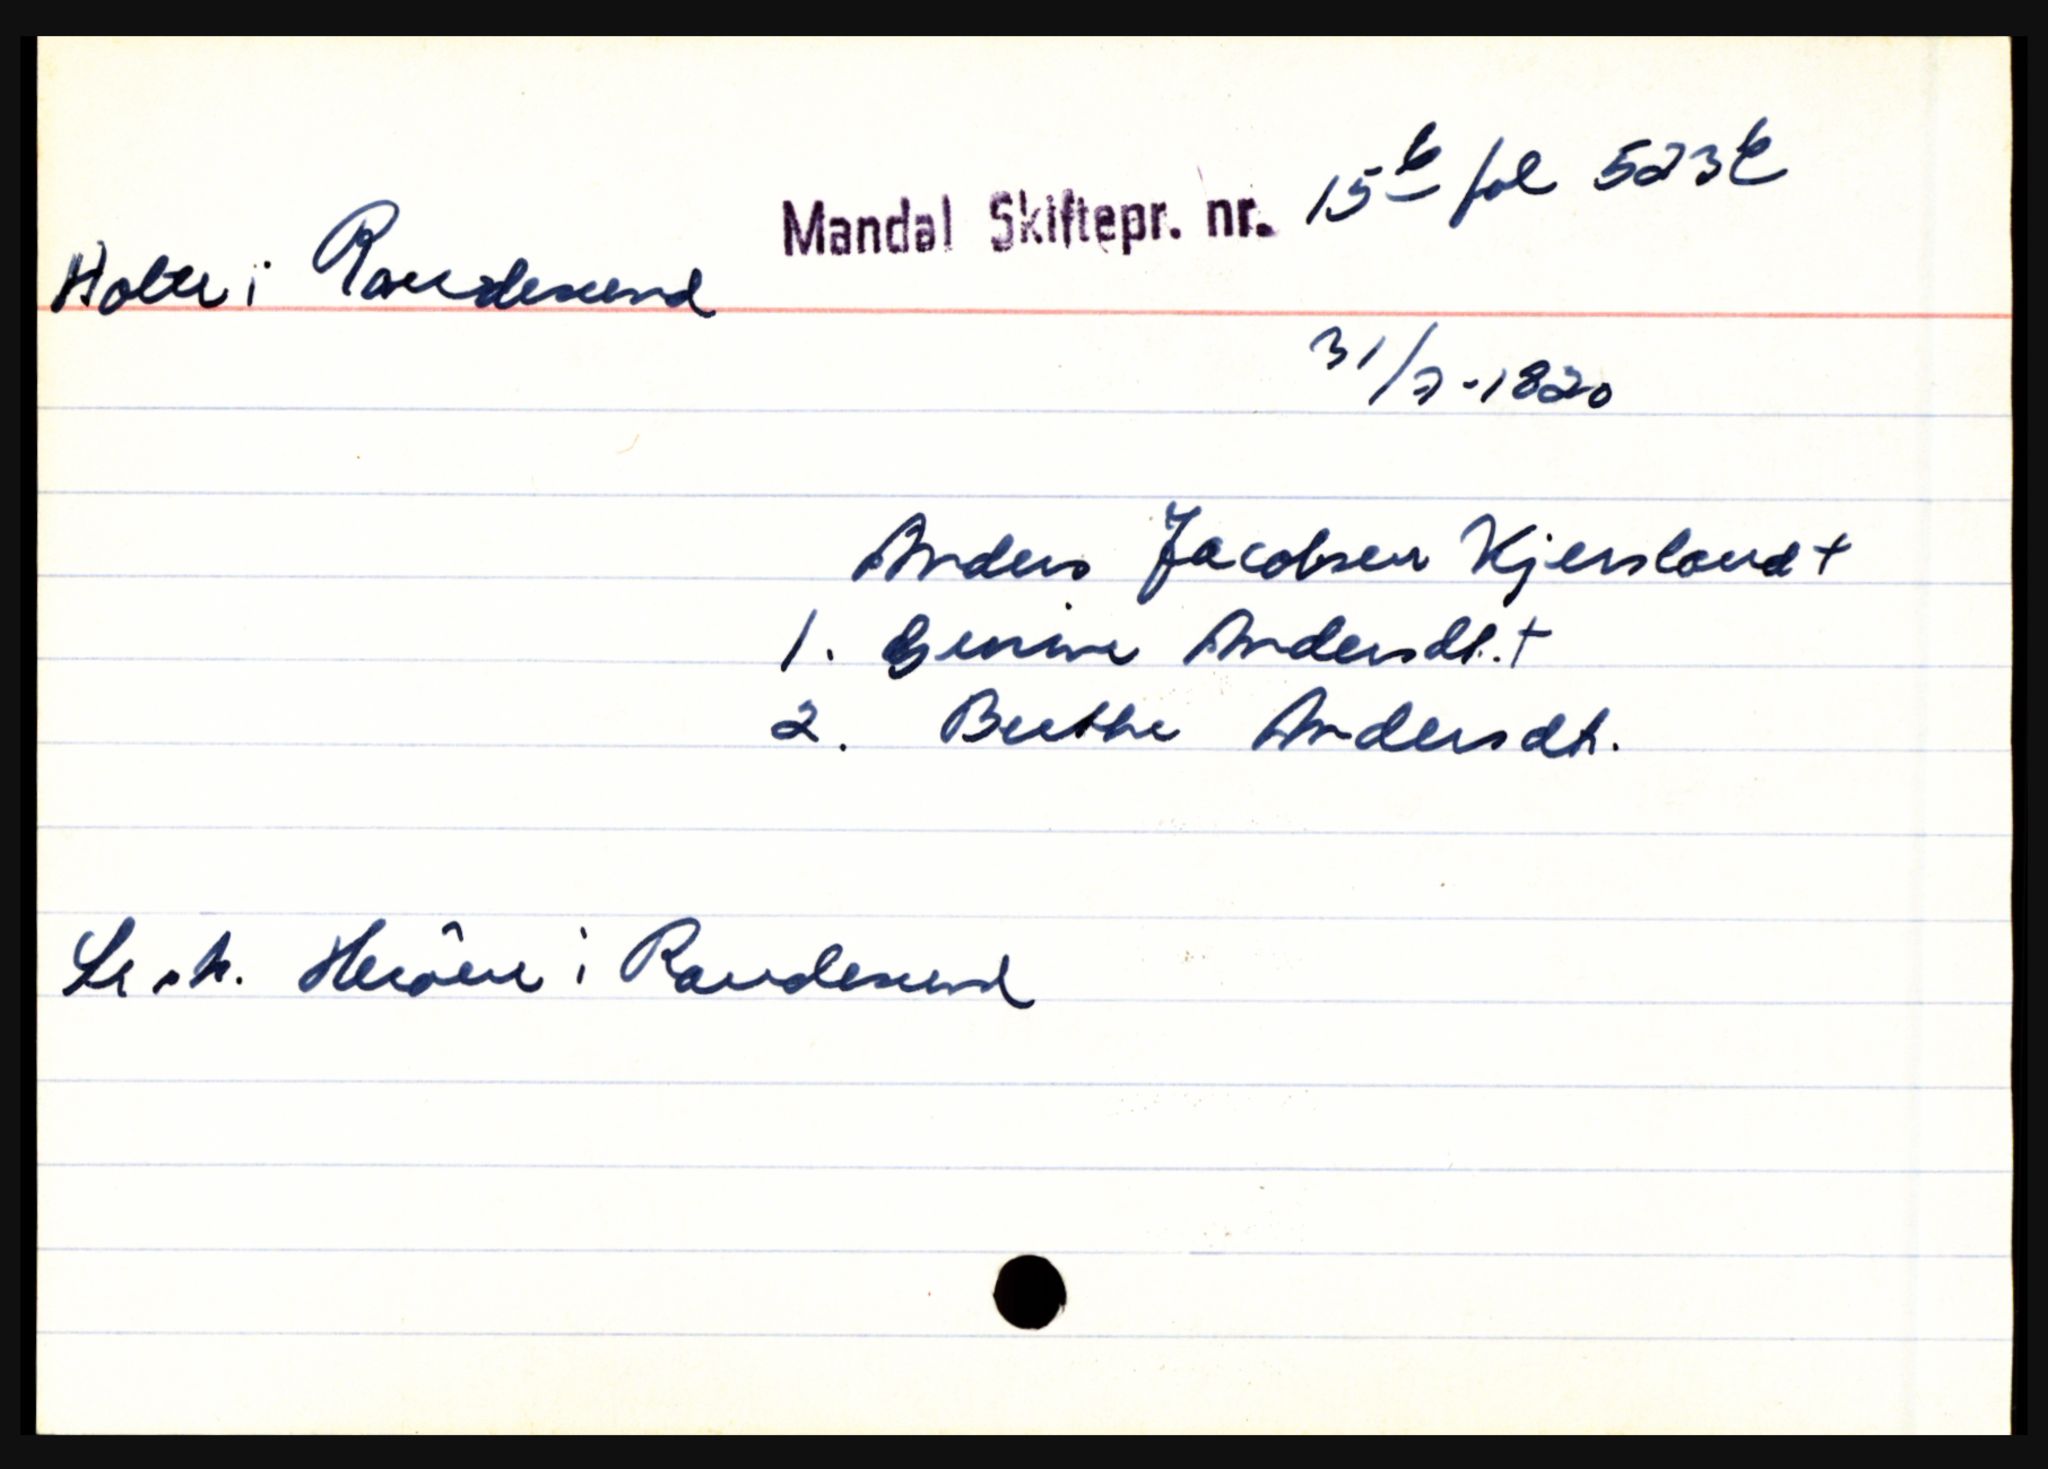 Mandal Skiftepr. nr. 15b fol 523b
Holte i Randesund
31/7-1820
Anders Jacobsen Kjersland +
1. Gunine Andersdt. +
2. Berthe Andersdt.
Se sk. Herøen i Randesund